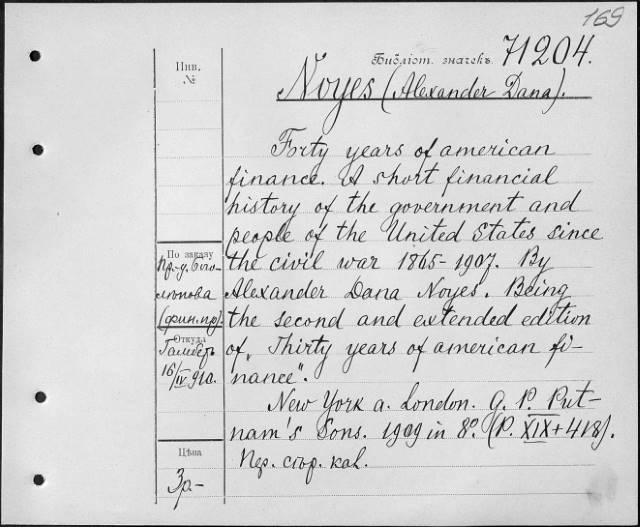 169
Инв.
№
Библіот. значекъ 71204.
Noyes (Alexander Dana).
Forty years of american
finance. A short financial
history of the government and
people of the United States since
the civil war 1865-1907. By
Alexander Dana Noyes. Being
the second and extended edition
of „Thirty years of american fi-
nance".
New York a. London. G. P. Put-
nam's Sons. 1909 in 8º. (P. XIX+418).
По заказу
Пр-д.
(фин.пр).
Откуда
16/IV 910.
Цѣна
3р-